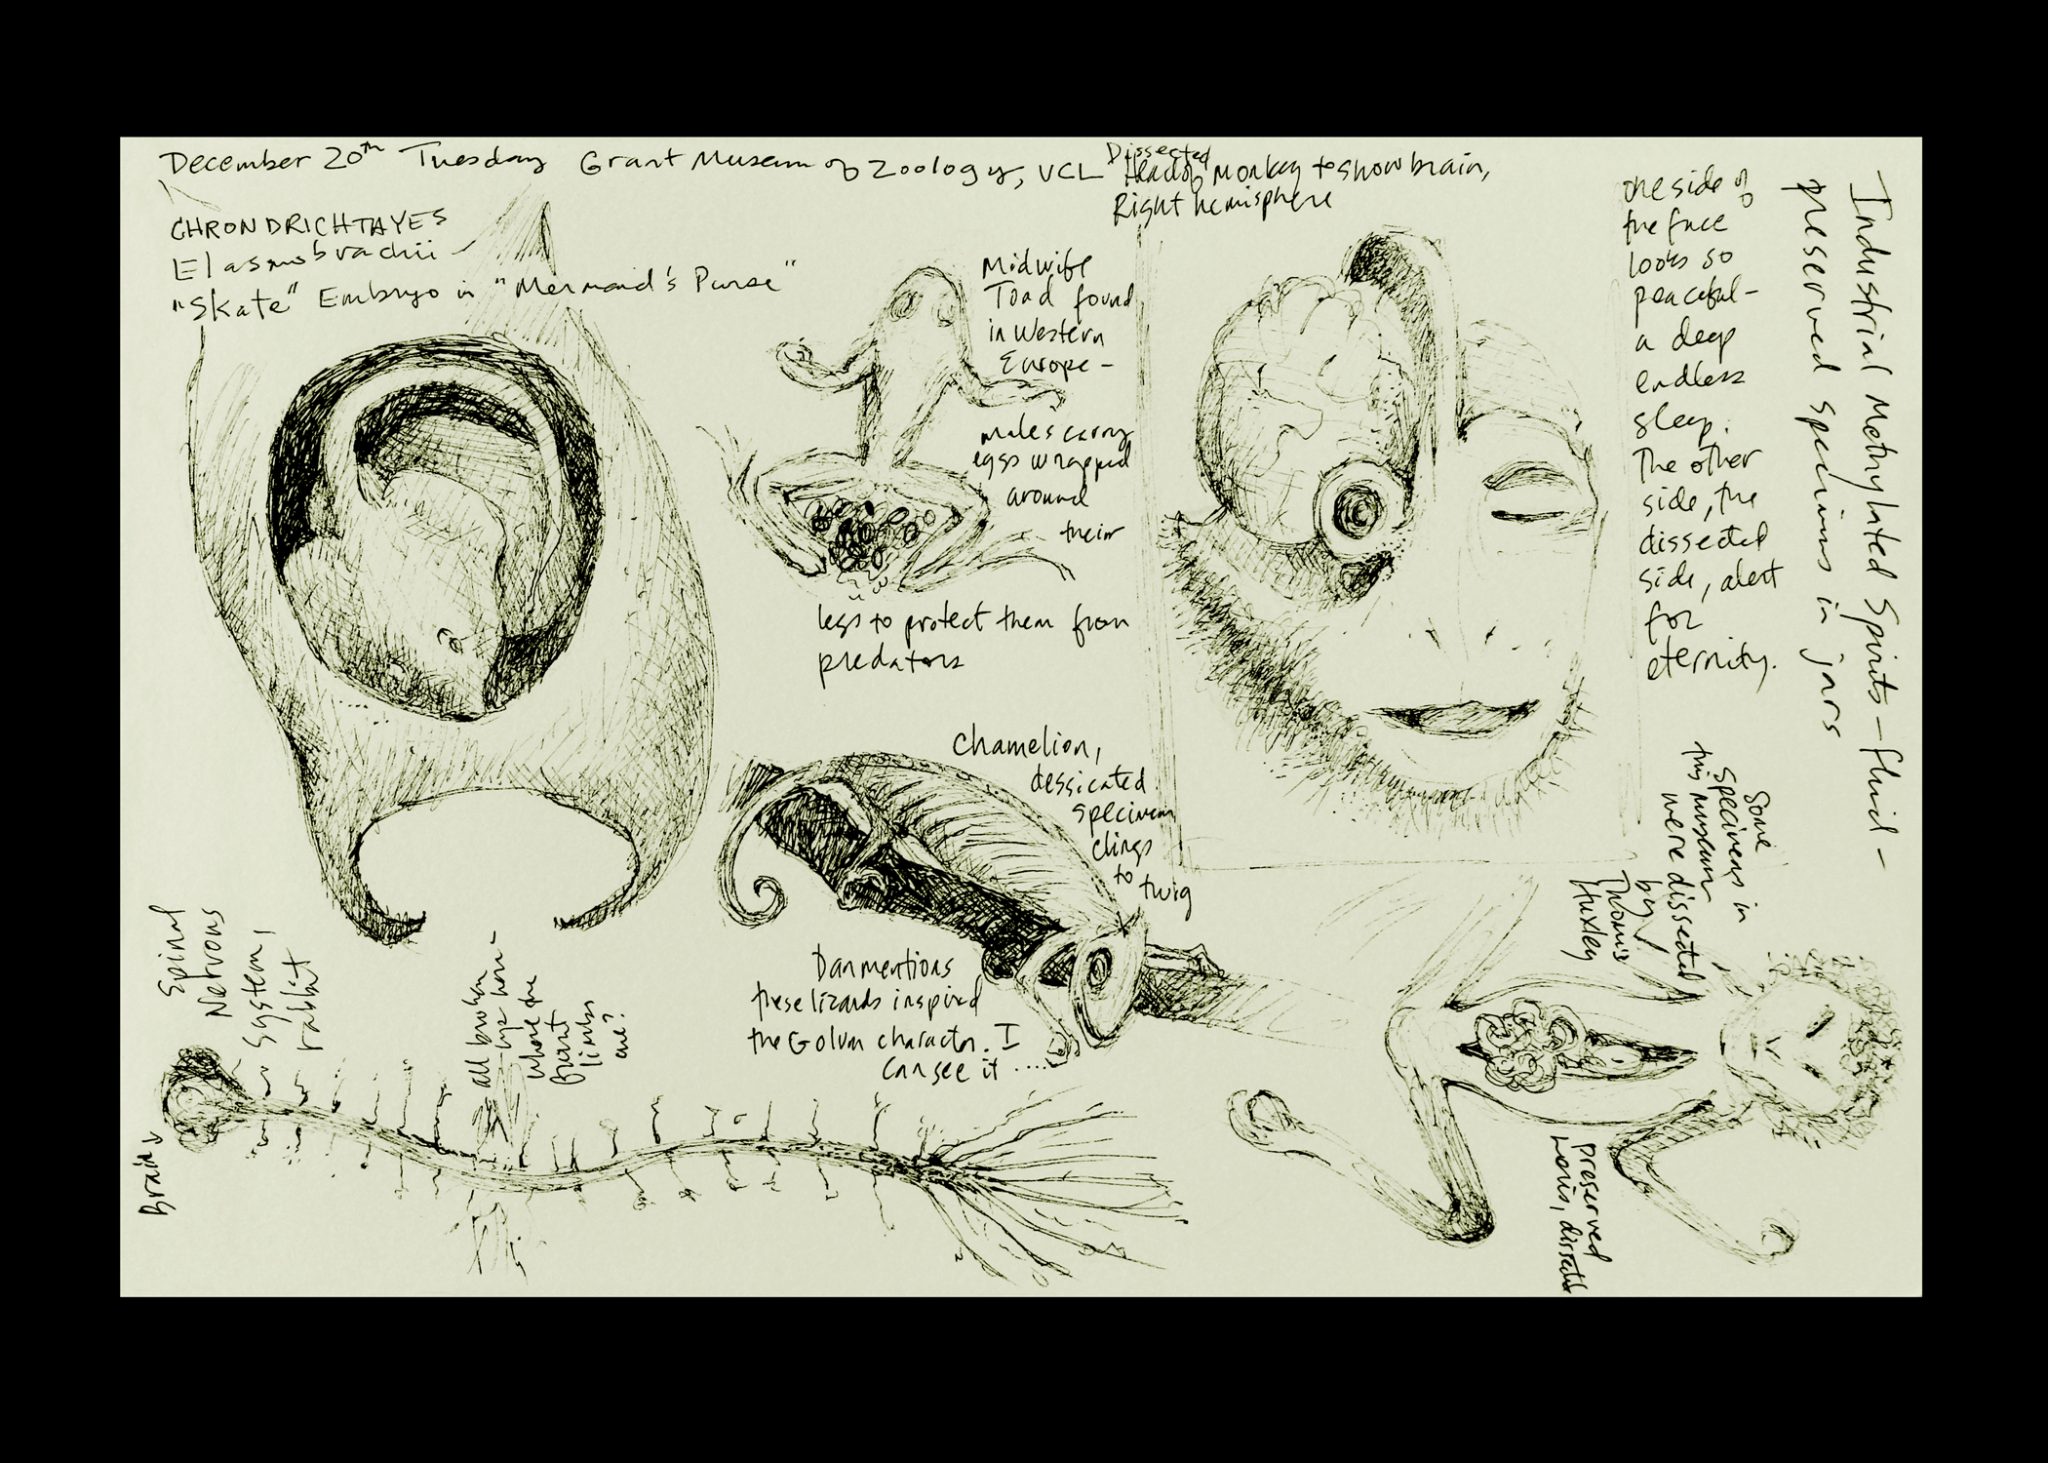 December 20th Tuesday Grant Museum of Zoology, UCL
CHRONDRICHTAYES
Elasmobrachii
"Skate" Embryo in "Mermaid's Purse"
Midwife
Toad found
in Western
Europe -
males carry
eggs wrapped
around
their
legs to protect them from
predators
Dissected
Head of Monkey to show brain,
Right hemisphere
one side of
the face
looks so
peaceful -
a deep
endless
sleep.
The other
side, the
dissected
side, alert
for
eternity.
Industrial Methylated Spirits - fluid -
preserved specimens in jars
Chamelion,
dessicated
specimen
clings
to twig
Dan mentions
these lizards inspired
the Golum character. I
can see it ....
Some
specimens in
this museum
were dissected
by
Thomas
Huxley
preserved
Loris, dissected
Spinal
Nervous
System,
rabbit
Brain
all broken
up here -
where the
front
limbs
are?